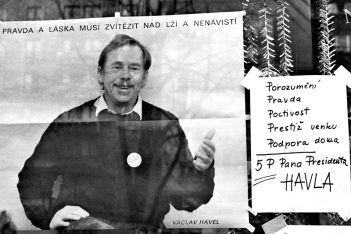 PRAVDA A LÁSKA MUSÍ ZVÍTĚZIT NAD LŽÍ A NENÁVISTÍ
VÁCLAV HAVEL
Porozumění
Pravda
Poctivost
Prestiž venku
Podpora doma
5 P Pana Presidenta
HAVLA